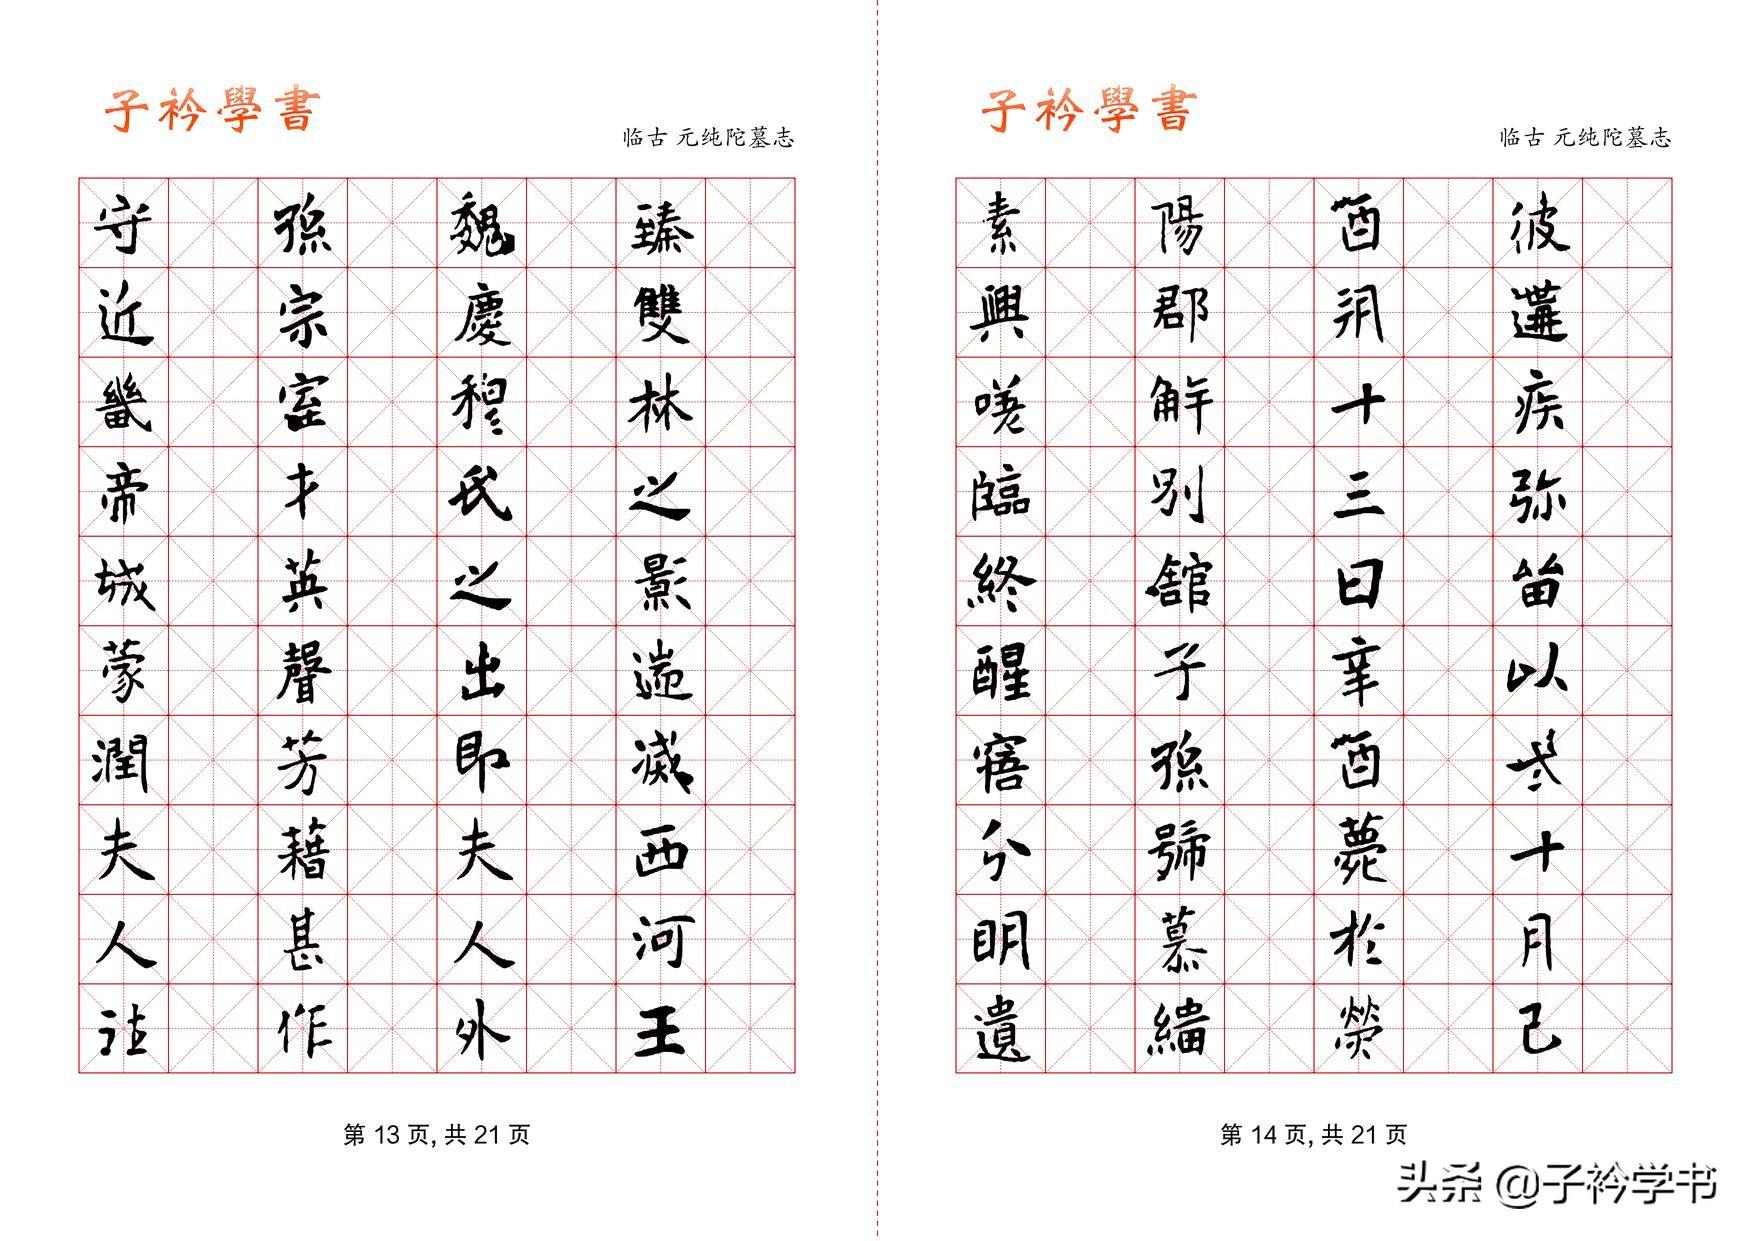 子衿學書
临古 元纯陀墓志
臻雙林之影遄滅西河王
魏慶穆氏之出即夫人外
孫宗室才英聲芳藉甚作
守近畿帝城蒙潤夫人往
第 13 页, 共 21 页
子衿學書
临古 元纯陀墓志
彼遘疾弥留以冬十月己
酉朔十三日辛酉薨於滎
陽郡解別舘子孫號慕緇
素興嗟臨終醒寤分明遺
第 14 页, 共 21 页
头条 @子衿学书